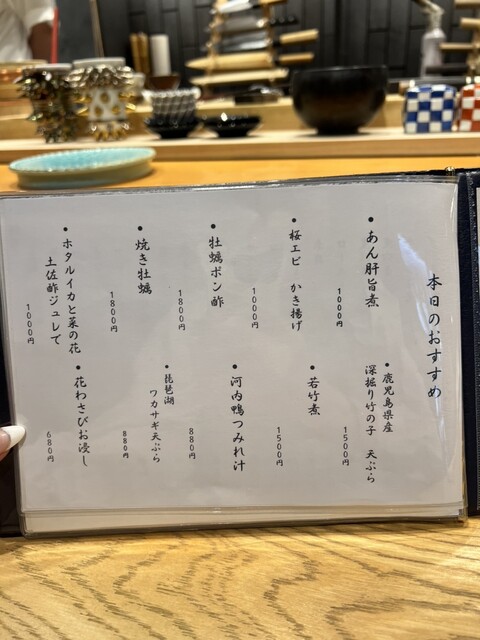 本日のおすすめ
・あん肝旨煮
1000円
・桜エビ かき揚げ
1000円
・牡蠣ポン酢
1800円
・焼き牡蠣
1800円
・ホタルイカと菜の花
土佐酢ジュレで
1000円
・鹿児島県産
深掘り竹の子 天ぷら
1500円
・若竹煮
1500円
・河内鴨つみれ汁
880円
・琵琶湖
ワカサギ天ぷら
880円
・花わさびお浸し
680円